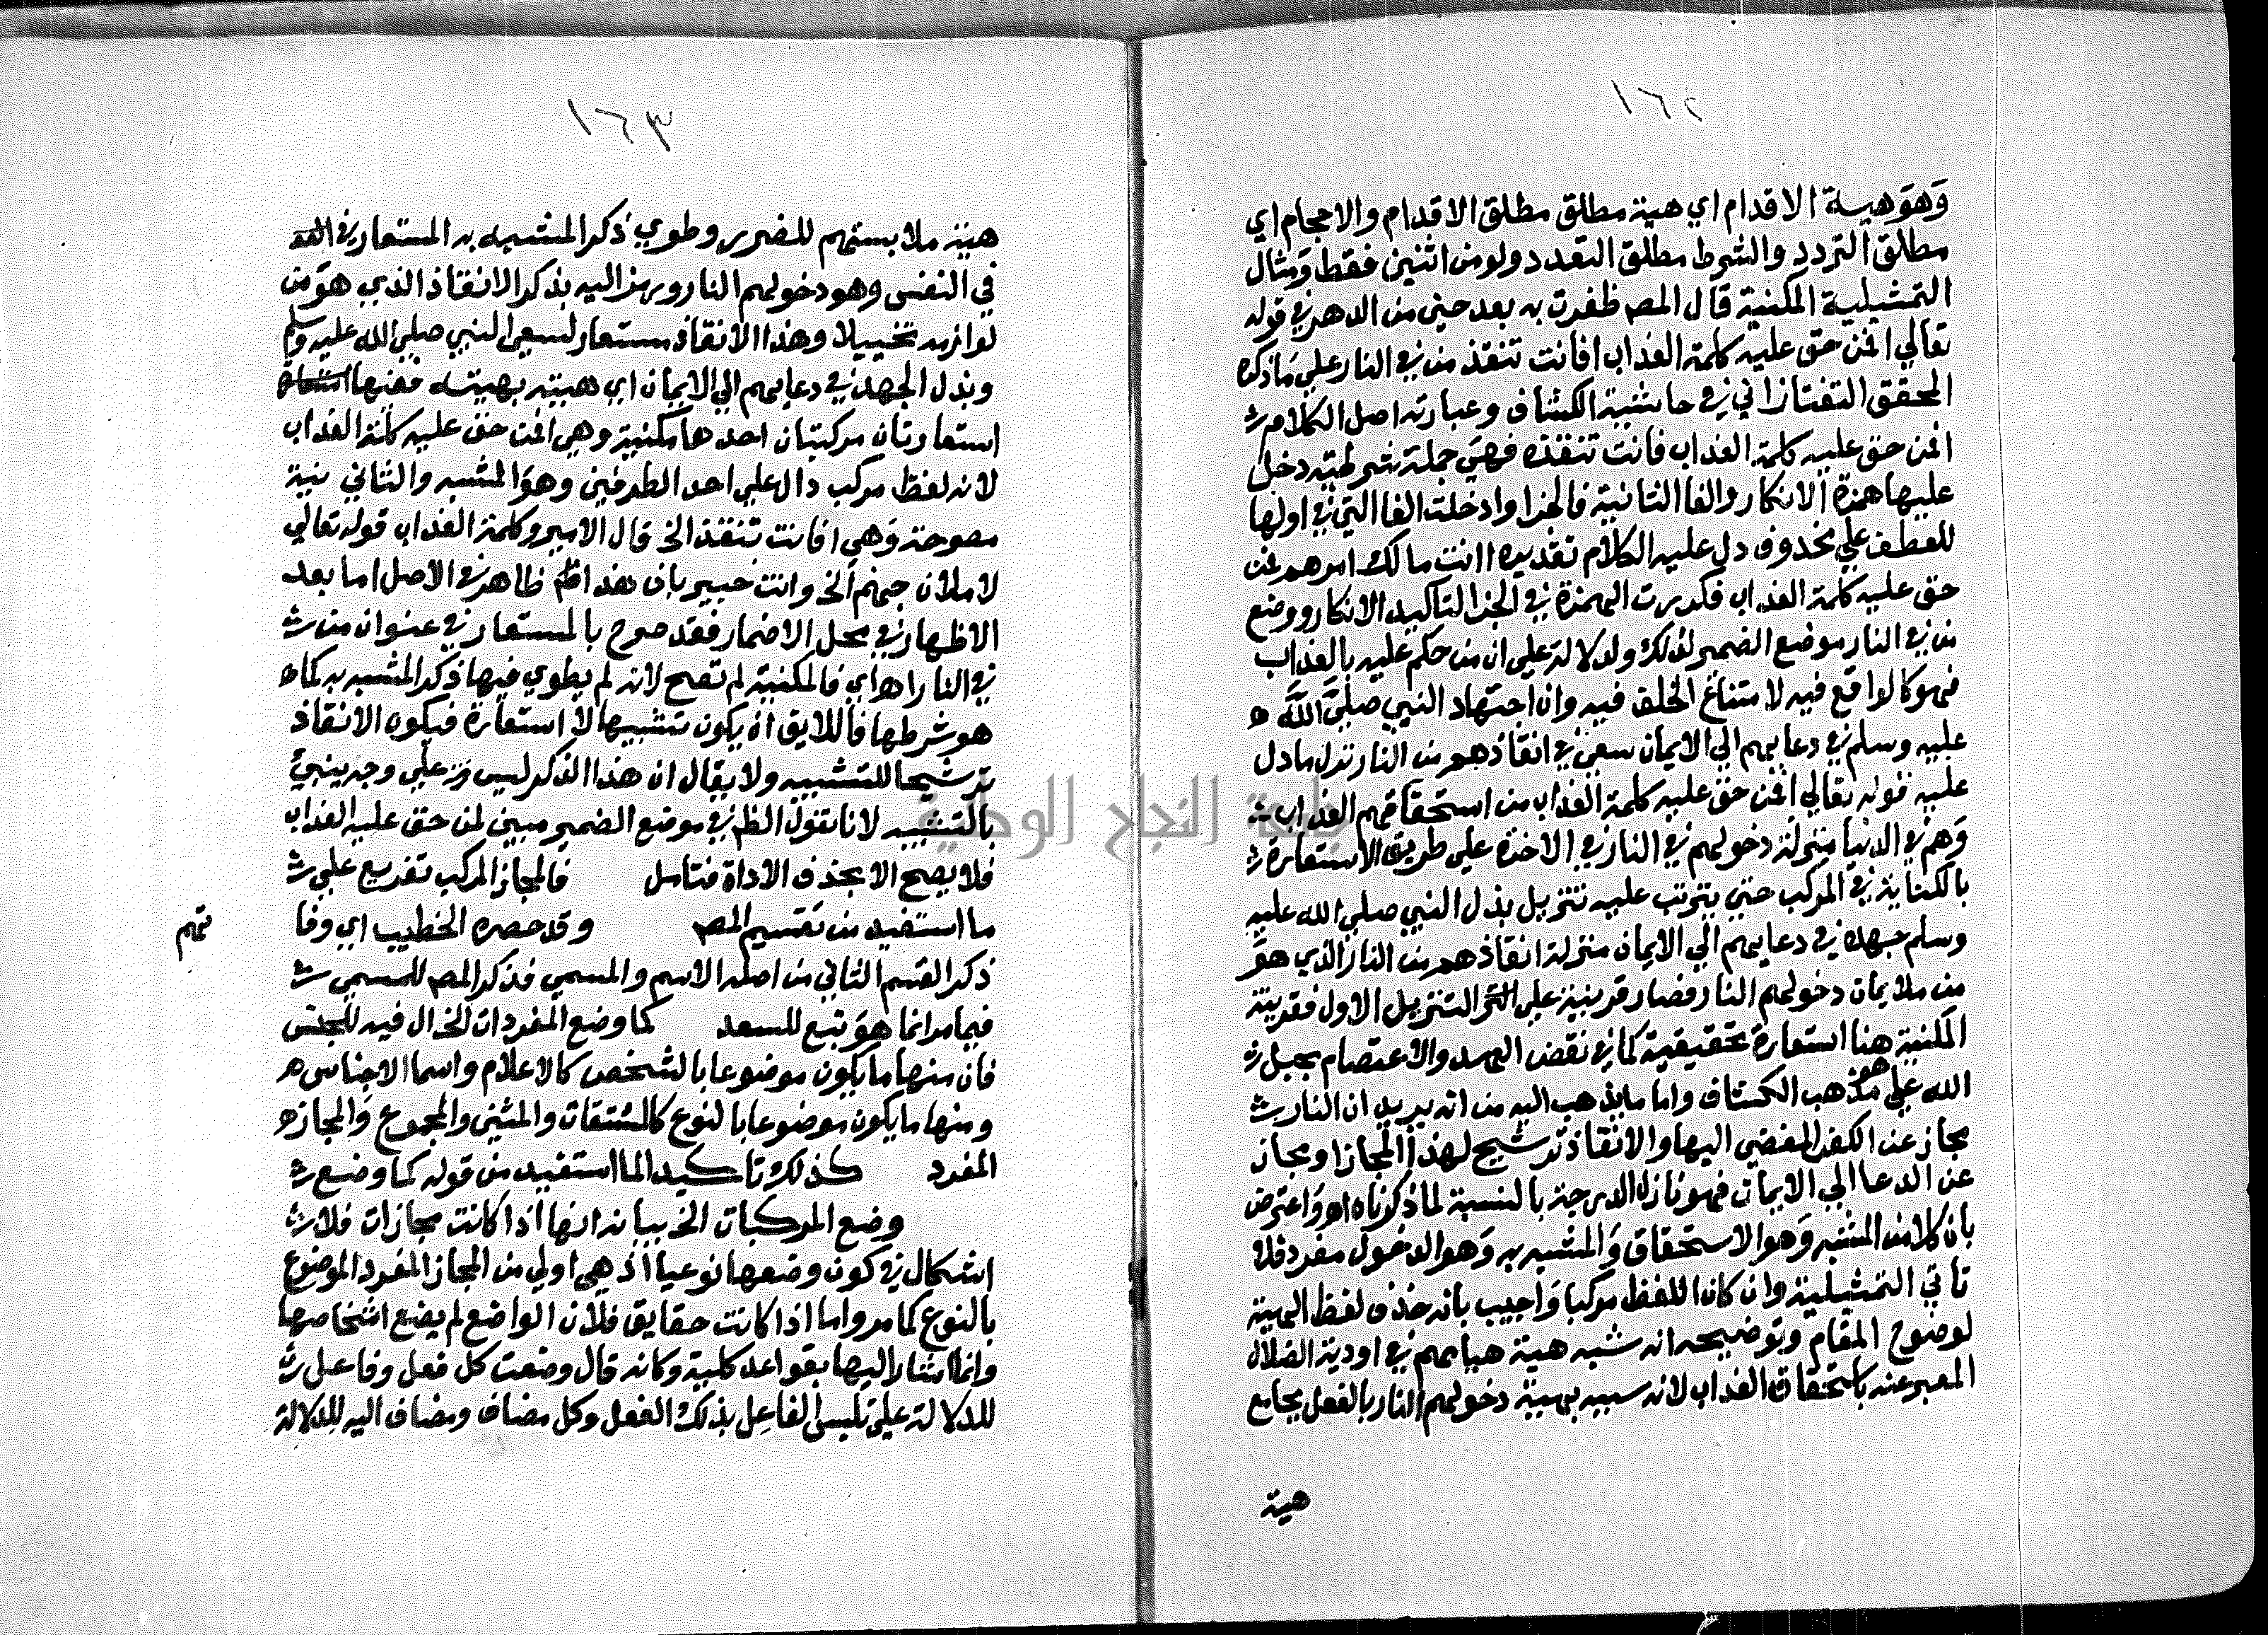 ١٦٢
وهو هيئة الاقدام اي هيئة مطلق مطلق الاقدام والاحجام اي
مطلق التردد والشرط مطلق التعدد ولو من اثنين فقط ومثال
التمثيلية المكنية قال المص ظفرت به بعد حين من الدهر في قوله
تعالي افمن حق عليه كلمة العذاب افانت تنقذ من في النار علي ما ذكره
المحقق التفتازاني في حاشية الكشاف وعبارته اصل الكلام
افمن حق عليه كلمة العذاب فانت تنقذه فهي جملة شرطية دخل
عليها همزة الانكار والفا الثانية فا الجزا وادخلت الفا التي في اولها
للعطف علي محذوف دل عليه الكلام تقديره اانت مالك امرهم فمن
حق عليه كلمة العذاب فكررت الهمزة في الجزا لتاكيد الانكار ووضع
من في النار موضع الضمير لذلك ولدلالة علي ان من حكم عليه بالعذاب
فهو كالواقع فيه لامتناع الخلف فيه وان اجتهاد النبي صلي الله
عليه وسلم في دعايهم الي الايمان سعي في انقاذهم من النار نزل ما دل
عليه قوله تعالي افمن حق عليه كلمة العذاب من استحقاقهم العذاب
وهم في الدنيا منزلة دخولهم في النار في الاخرة علي طريق الاستعارة
بالكناية في المركب حتي يترتب عليه تنزيل بذل النبي صلي الله عليه
وسلم جهده في دعايهم الي الايمان منزلة انقاذهم من النار الذي هو
من ملايمات دخولهم النار فصار قرينة علي التنزيل الاول فقرينة
المكنية هنا استعارة تحقيقية كما في نقض العهد والاعتصام بحبل
الله علي مذهب الكشاف واما ما يذهب اليه من انه يريد ان النار
مجاز عن الكفر المفضي اليها والانقاذ ترشيح لهذا المجاز او مجاز
عن الدعا الي الايمان فهو نازل الدرجة بالنسبة لما ذكرناه اه واعترض
بان كلا من المشبه وهو الاستحقاق والمشبه به وهو الدخول مفرد فلا
تاتي التمثيلية وان كان اللفظ مركبا واجيب بانه حذف لفظ الهيئة
لوضوح المقام وتوضيحه انه شبه هيئة هيامهم في اودية الضلال
المعبر عنه باستحقاق العذاب لانه سببه بهيئة دخولهم النار بالفعل بجامع
هيئة
١٦٣
هيئة ملابستهم للضرر وطوي ذكر المشبه به المستعار في
في النفس وهو دخولهم النار ورمز اليه بذكر الانقاذ الذي هو من
لوازمه تخييلا وهذا الانقاذ مستعار لسعي النبي صلي الله عليه وسلم
وبذل الجهد في دعايهم الي الايمان اي هيئته بهيئته ففيها
استعارتان مركبتان احدهما مكنية وهي افمن حق عليه كلمة العذاب
لانه لفظ مركب دال علي احد الطرفين وهو المشبه والثاني نية
مصرحة وهي افانت تنقذ الخ قال الامير وكلمة العذاب قوله تعالي
لاملان جهنم الخ وانت خبير بان هذا ان ظاهر في الاصل اما بعد
الاظهار في محل الاضمار فقد صرح بالمستعار في عنوان من
في النار اه اي فالمكنية لم تصح لانه لم يطوي فيها ذكر المشبه به كما
هو شرطها فاللايق ان يكون تشبيها لا استعارة فيكون الانقاذ
ترشيحا للتشبيه ولا يقال ان هذا الذكر ليس علي وجه ينبئ
بالتشبيه لانا نقول الظم في موضع الضمير مبين لمن حق عليه العذاب
فلا يصح الا بحذف الاداة فتامل فالمجاز المركب تفريع علي
ما استفيد من تقسيم المص وقد حصره الخطيب اي وفا
تمم
ذكر القسم الثاني من اصله الاسم والمسمي فذكر المص للمسمي
فيما مر انما هو تبع للسعد كما وضع المفردات الخ ال فيه للجنس
فان منها ما يكون موضوعا بالشخص كالاعلام واسما الاجناس
ومنها ما يكون موضوعا بالنوع كالمشتقات والمثني والمجموع والمجاز
المفرد كذلك تاكيد لما استفيد من قوله كما وضع
وضع المركبات الخ بيانه انها اذا كانت مجازات فلا
اشكال في كون وضعها نوعيا اذ هي اولي من المجاز المفرد الموضوع
بالنوع كما مر واما اذا كانت حقايق فلان الواضع لم يضع اشخاصها
وانما اشار اليها بقواعد كلية وكانه قال وضعت كل فعل وفاعل
للدلالة علي تلبس الفاعل بذلك الفعل وكل مضاف ومضاف اليه للدلالة
جامعة النجاح الوطنية